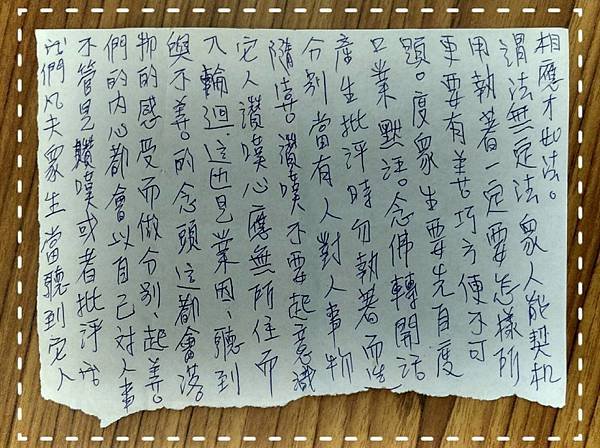 我們凡夫眾生當聽到它人
不管是讚嘆或者批評、我
們的內心都會以自己對人事
物的感受而做分別、起善。
與不善。的念頭這都會落。
入輪迴、這也是業因、聽到
它人讚嘆心應無所住而
隨喜。讚嘆不要起意識
分別當有人對人事物
產生批評時勿執著而造
口業 默語。念佛轉開話
題。度眾生要先自度
更要有善巧方便不可
用執著一定要怎樣所
謂法無定法 眾人能契机
相應才如法。